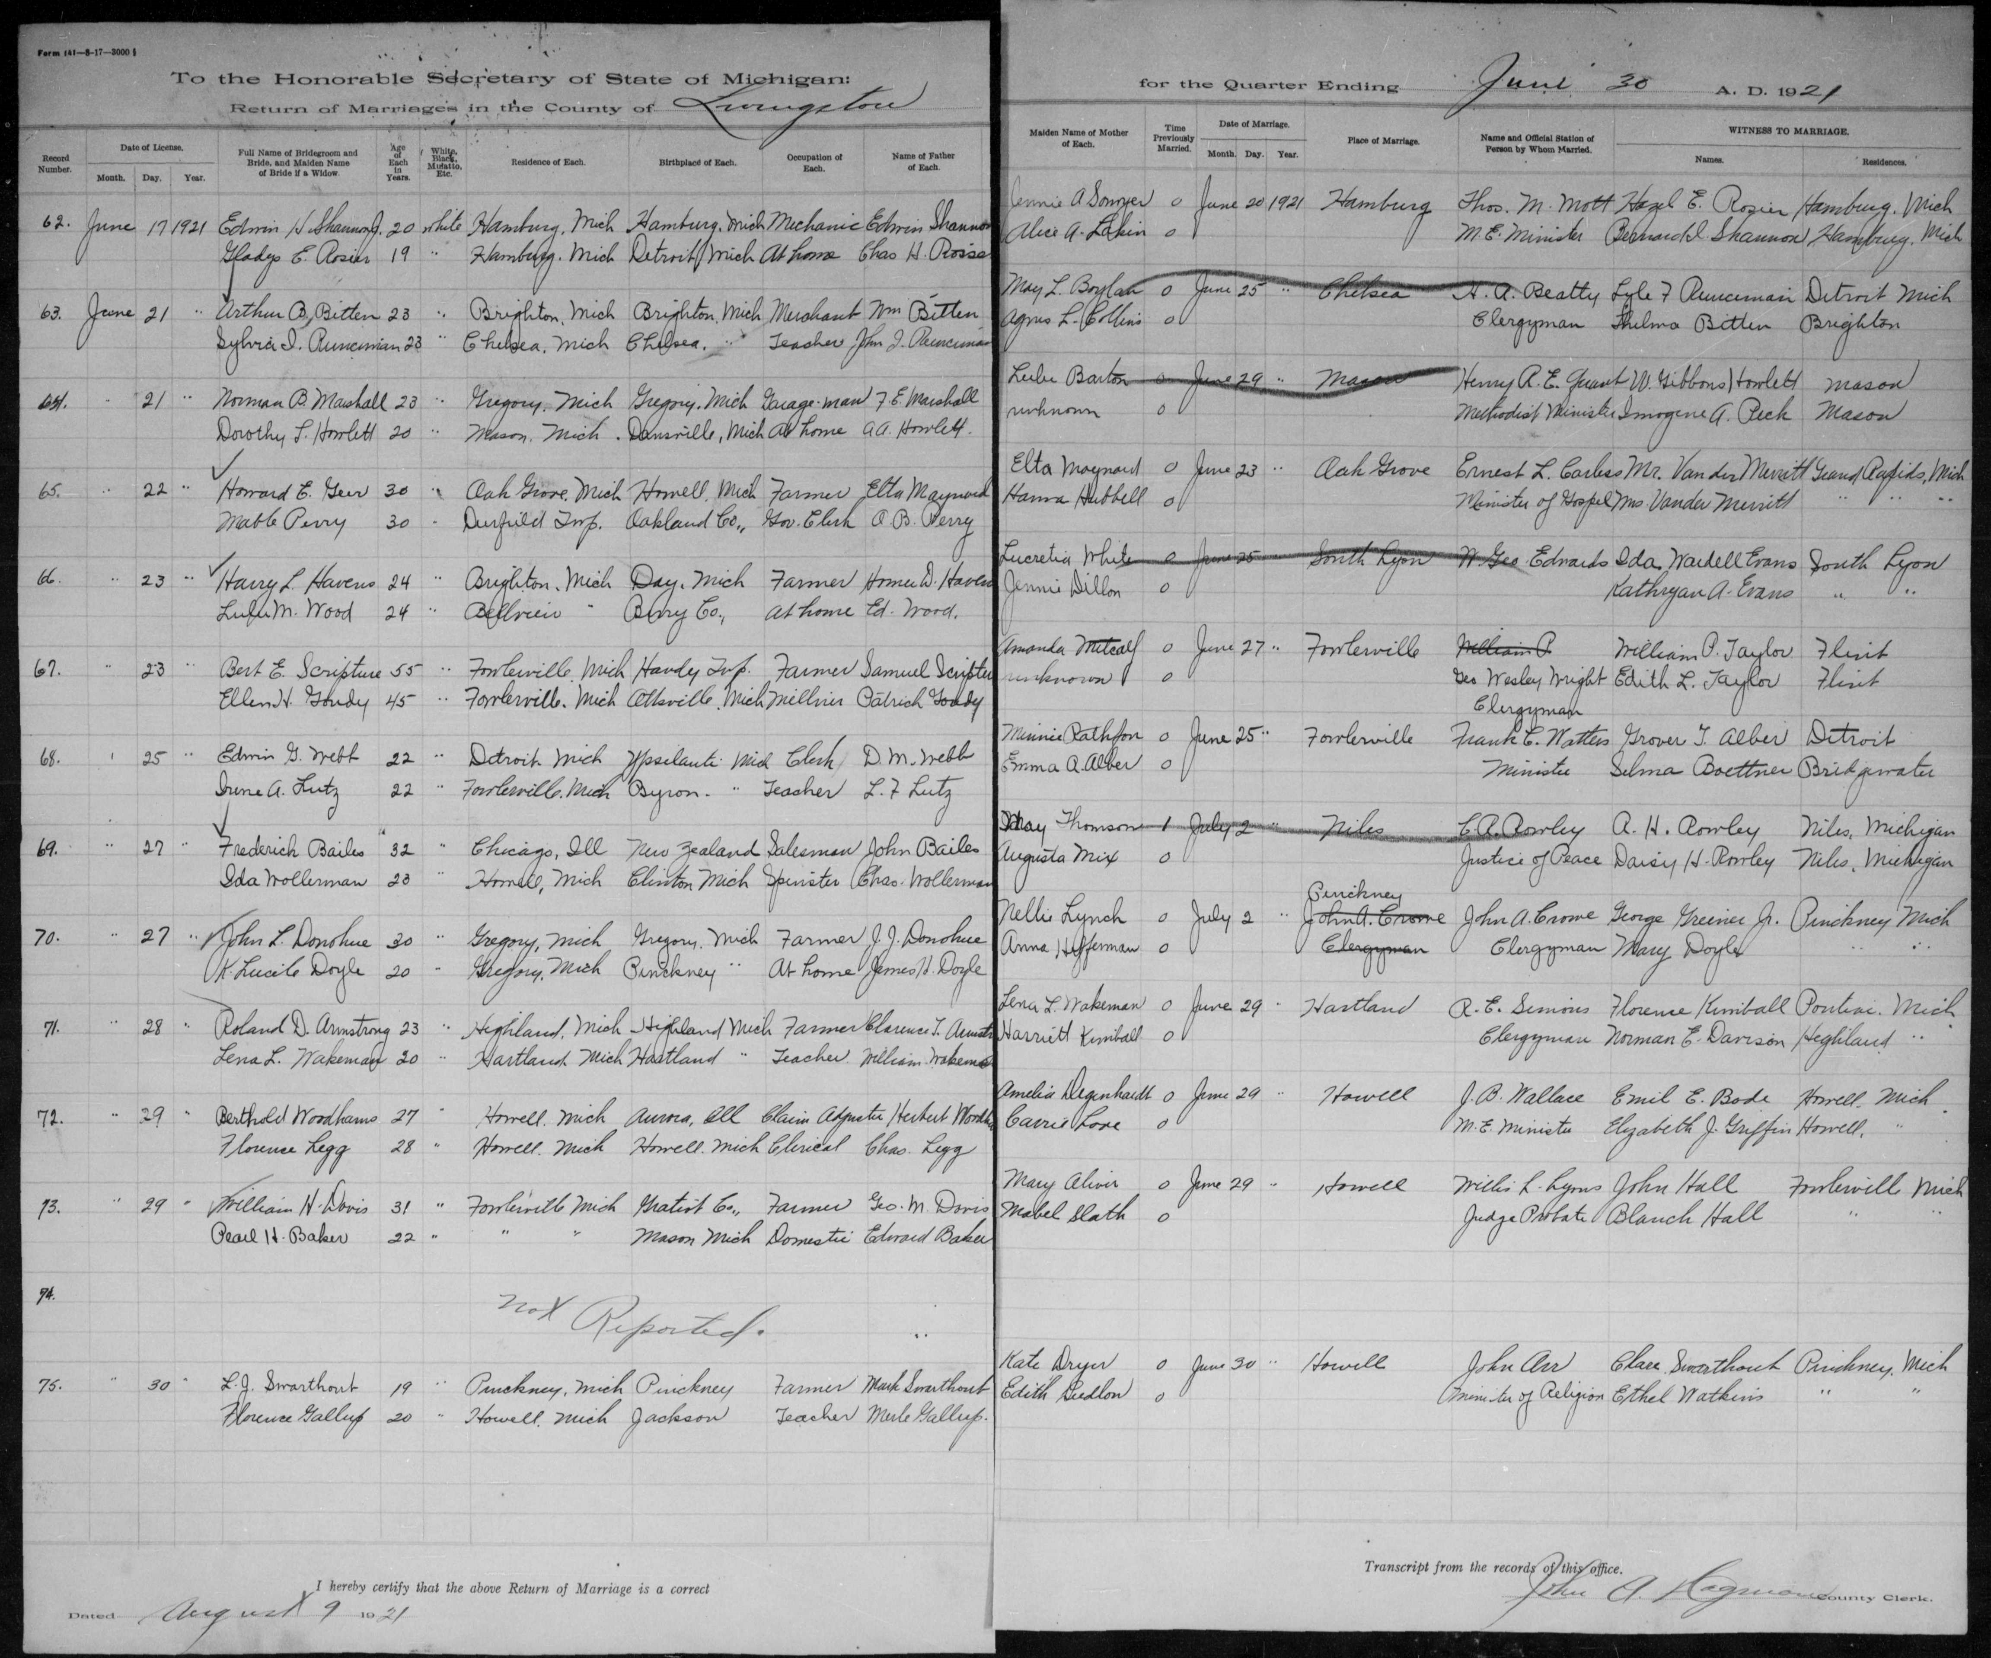 Form 141—8-17—3000
To the Honorable Secretary of State of Michigan: for the Quarter Ending June 30 A. D. 1921
Return of Marriages in the County of Livingston
Record Number. Date of License. Month. Day. Year. Full Name of Bridegroom and Bride, and Maiden Name of Bride if a Widow. Age of Each in Years. White, Black, Mulatto, Etc. Residence of Each. Birthplace of Each. Occupation of Each. Name of Father of Each. Maiden Name of Mother of Each. Time Previously Married. Date of Marriage. Month. Day. Year. Place of Marriage. Name and Official Station of Person by Whom Married. WITNESS TO MARRIAGE. Names. Residences.
62. June 17 1921 Edwin H. Shannon J. 20 white Hamburg, Mich Hamburg, Mich Mechanic Edwin Shannon Jennie A Sawyer 0 June 20 1921 Hamburg Thos. M. Mott Hazel E. Rosier Hamburg, Mich
Gladys E. Rosier 19 " Hamburg, Mich Detroit, Mich At home Chas H. Alice A. Lakin 0 M.E. Minister Bernard L. Shannon Hamburg, Mich
63. June 21 " Arthur B. Bitten 23 " Brighton, Mich Brighton, Mich Merchant Wm Bitten May L. Boylan 0 June 25 " Chelsea H. A. Beatty Lyle F Runciman Detroit Mich
Sylvia I. Runciman 23 " Chelsea, Mich Chelsea, " Teacher John J. Runciman Agnes L. Collins 0 Clergyman Thelma Bitten Brighton
64. " 21 " Norman B. Marshall 23 " Gregory, Mich Gregory, Mich Garage-man F. E. Marshall Barton 0 June 29 " Mason Henry R. E. Quant W. Gibbons Howlett Mason
Dorothy L. Howlett 20 " Mason, Mich. Dansville, Mich At home A A. Howlett. unknown 0 Methodist Minister Imogene A. Peck Mason
65. " 22 " Howard E. Geer 30 " Oak Grove, Mich Howell, Mich Farmer Elta Maynard Elta Maynard 0 June 23 " Oak Grove Ernest L. Carless Mr. Vander Merritt Grand Rapids, Mich
Mable Perry 30 " Deerfield Twp. Oakland Co., Gov. Clerk O. B. Perry Hanna Hubbell 0 Minister of Gospel Mrs Vander Merritt " " "
66. " 23 " Harry L. Havens 24 " Brighton, Mich Day, Mich Farmer Homer D. Havens Lucretia White 0 June 25 South Lyon W. Geo. Edwards Ida Wardell Evans South Lyon
Lulu M. Wood 24 " Bellview " Barry Co., at home Ed. Wood. Jennie Dillon 0 Kathryan A. Evans " "
67. " 23 " Bert E. Scripture 55 " Fowlerville, Mich Handy Twp. Farmer Samuel Amanda Metcalf 0 June 27 " Fowlerville William P. William P. Taylor Flint
Ellen H. Goudy 45 " Fowlerville, Mich Mich Milliner Patrick Goudy unknown 0 Geo Wesley Wright Edith L. Taylor Flint
Clergyman
68. " 25 " Edwin G. Webb 22 " Detroit Mich Ypsilanti Mich Clerk D. M. Webb Minnie Rathfon 0 June 25 " Fowlerville Frank E. Watters Grover T. Alber Detroit
Irene A. Lutz 22 " Fowlerville, Mich Byron. " Teacher L. F Lutz Emma A. Alber 0 Minister Selma Boettner Bridgewater
69. " 27 " Frederick Bailes 32 " Chicago, Ill New Zealand Salesman John Bailes May Thomson 1 July 2 " Niles C. A. Rowley A. H. Rowley Niles, Michigan
Ida Wollerman 23 " Howell, Mich Clinton Mich Spinster Chas. Wollerman Augusta Mix 0 Justice of Peace Daisy H. Rowley Niles, Michigan
Pinckney
70. " 27 " John L. Donohue 30 " Gregory, Mich Gregory, Mich Farmer J. J. Donohue Nellie Lynch 0 July 2 " John A. Crowe John A. Crowe George Greiner Jr. Pinckney Mich
K. Lucile Doyle 20 " Gregory, Mich Pinckney " At home James H. Doyle Anna Hefferman 0 Clergyman Clergyman Mary Doyle " "
71. " 28 " Roland D. Armstrong 23 " Highland, Mich Highland Mich Farmer Clarence T. Lena L. Wakeman 0 June 29 " Hartland R. E. Simons Florence Kimball Pontiac, Mich
Lena L. Wakeman 20 " Hartland Mich Hartland " Teacher William Wakeman Harriett Kimball 0 Clergyman Norman E. Davison Highland "
72. " 29 " Berthold Woodhams 27 " Howell, Mich Aurora, Ill Claim Adjuster Herbert Amelia Degenhardt 0 June 29 " Howell J. B. Wallace Emil E. Bode Howell, Mich.
Florence Legg 28 " Howell, Mich Howell, Mich Clerical Chas. Legg Carrie Love 0 M.E. Minister Elizabeth J. Griffin Howell, "
73. " 29 " William H. Davis 31 " Fowlerville Mich Gratiot Co., Farmer Geo. M. Davis Mary Oliver 0 June 29 " Howell Willis L. Lyons John Hall Fowlerville Mich
Pearl H. Baker 22 " " " Mason Mich Domestic Edward Baker Mabel Slath 0 Judge Probate Blanch Hall " "
74. Not Reported.
75. " 30 " L. J. Swarthout 19 " Pinckney, Mich Pinckney Farmer Mark Swarthout Kate Dryer 0 June 30 " Howell John Orr Clare Swarthout Pinckney, Mich
Florence Gallup 20 " Howell, Mich Jackson Teacher Merle Gallup. Edith 0 Minister of Religion Ethel Watkins " "
I hereby certify that the above Return of Marriage is a correct Transcript from the records of this office.
Dated August 9 1921 John A. Hagman County Clerk.